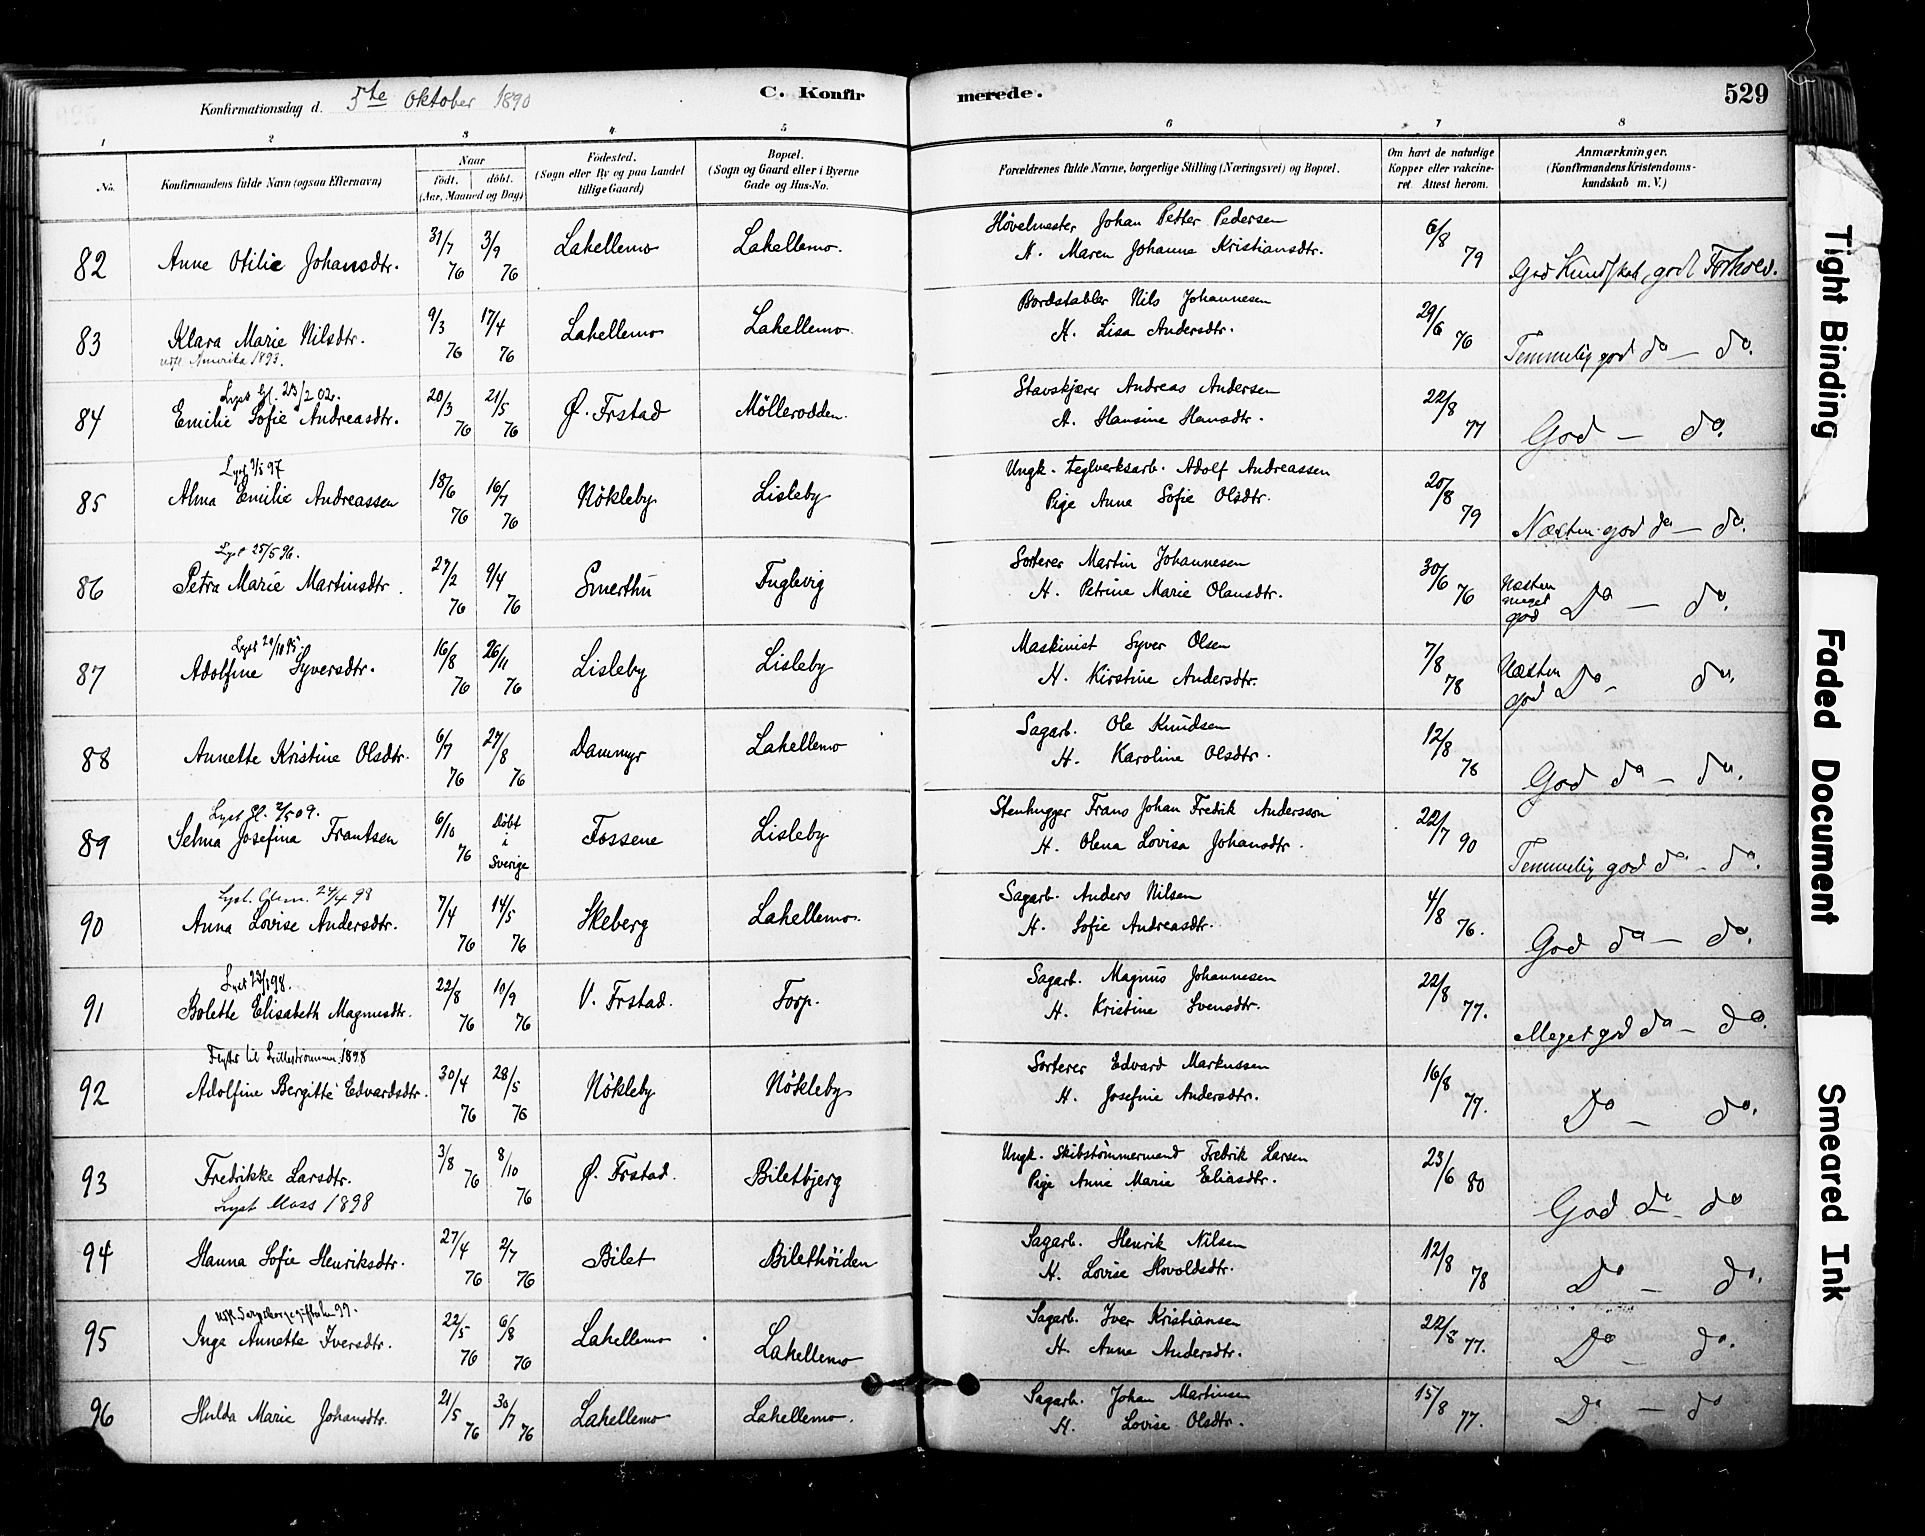 Konfirmationsdag d. 5te Oktober 1890 C. Konfirmerede. 529
1 2 3 4 5 6 7 8
No. Konfirmandens fulde Navn (ogsaa Efternavn) Naar født. døbt. (Aar, Maaned og Dag) Fødested. (Sogn eller By og paa Landet tillige Gaard) Bopæl. (Sogn og Gaard eller i Byerne Gade og Hus-No. Forældrenes fulde Navne, borgerlige Stilling (Næringsvei) og Bopæl. Om havt de naturlige Kopper eller vakcineret. Attest herom. Anmærkninger. (Konfirmandens Kristendomskundskab m. V.)
82 Anne Otilie Johansdtr. 31/7 76 3/9 76 Lahellemo Lahellemo. Høvelmester Johan Petter Pedersen
H. Maren Johanne Kristiansdtr. 6/8 79 God Kundskab, godt Forhold.
83 Klara Marie Nilsdtr. 9/3 76 17/4 76 Lahellemo Lahellemo. Bordstabler Nils Johannesen
Amerika 1893. H. Lisa Andersdtr. 29/6 76 Temmelig god do — do.
Lyst Gl. 23/2 02.
84 Emilie Sofie Andreasdtr. 20/3 76 21/5 76 Ø. Frstad Möllerodden. Stavskjærer Andreas Andersen
H. Hansine Hansdtr. 22/8 77 God — do.
Lyst 9/5 97
85 Alma Emilie Andreassen 18/6 76 16/7 76 Nökleby Lisleby Ungk. teglverksarb. Adolf Andreassen
Pige Anne Sofie Olsdtr. 20/8 79 Næsten god do — do.
Lyst 25/5 96.
86 Petra Marie Martinsdtr. 27/2 76 9/4 76 Smerthu Fuglevig Sorterer Martin Johannesen
H. Petrine Marie Olausdtr. 30/6 76 Næsten meget god Do — do.
Lyst 20/10 95.
87 Adolfine Syversdtr. 16/8 76 26/11 76 Lisleby Lisleby Maskinist Syver Olsen
H. Kirstine Andersdtr. 7/8 78 Næsten god Do — do.
88 Annette Kristine Olsdtr. 6/7 76 27/8 76 Dammyr Lahellemo Sagarb. Ole Knudsen
H. Karoline Olsdtr. 12/8 78 God do — do.
Lyst Gl. 2/5 09.
89 Selma Josefina Frantsen 6/10 76 Döbt i Sverige Fossene Lisleby Stenhugger Frans Johan Fredrik Andersson
H. Olena Lovisa Johansdtr. 22/7 90 Temmelig god do — do.
Lyst. Glem. 24/4 98
90 Anna Lovise Andersdtr. 7/4 76 14/5 76 Skeberg Lahellemo. Sagarb. Anders Nilsen
H. Sofie Andreasdtr. 4/8 76. God do — do.
Lyst 98.
91 Bolette Elisabeth Magnusdtr. 22/8 76 10/9 76 V. Frstad. Torp. Sagarb. Magnus Johannesen
H. Kristine Svensdtr. 22/8 77. Meget god do — do.
Flyttet til Lillestrømmen 1898
92 Adolfine Bergitte Edvardsdtr. 30/4 76 28/5 76 Nökleby Nökleby Sorterer Edvard Markussen
H. Josefine Andersdtr. 16/8 77. Do — do.
93 Fredrikke Larsdtr. 3/8 76 8/10 76 Ø. Frstad. Biletbjerg Ungk. Skibstömmermand Fredrik Larsen
Lyst Moss 1898 Pige Anne Marie Eliasdtr. 23/6 80 God do — do
94 Hanna Sofie Henriksdtr. 27/4 76 2/7 76 Bilet Bilethöiden Sagarb. Henrik Nilsen
H. Lovise Hovoldsdtr. 12/8 78 Do — do.
99.
95 Inga Annette Iversdtr. 22/5 76 6/8 76 Lahellemo Lahellemo Sagarb. Iver Kristiansen
H. Anne Andersdtr. 22/8 77. Do — do.
96 Hulda Marie Johansdtr. 21/5 76 30/7 76 Lahellemo Lahellemo. Sagarb. Johan Martinsen
H. Lovise Olsdtr. 15/8 77. Do — do
Tight Binding
Faded Document
Smeared Ink